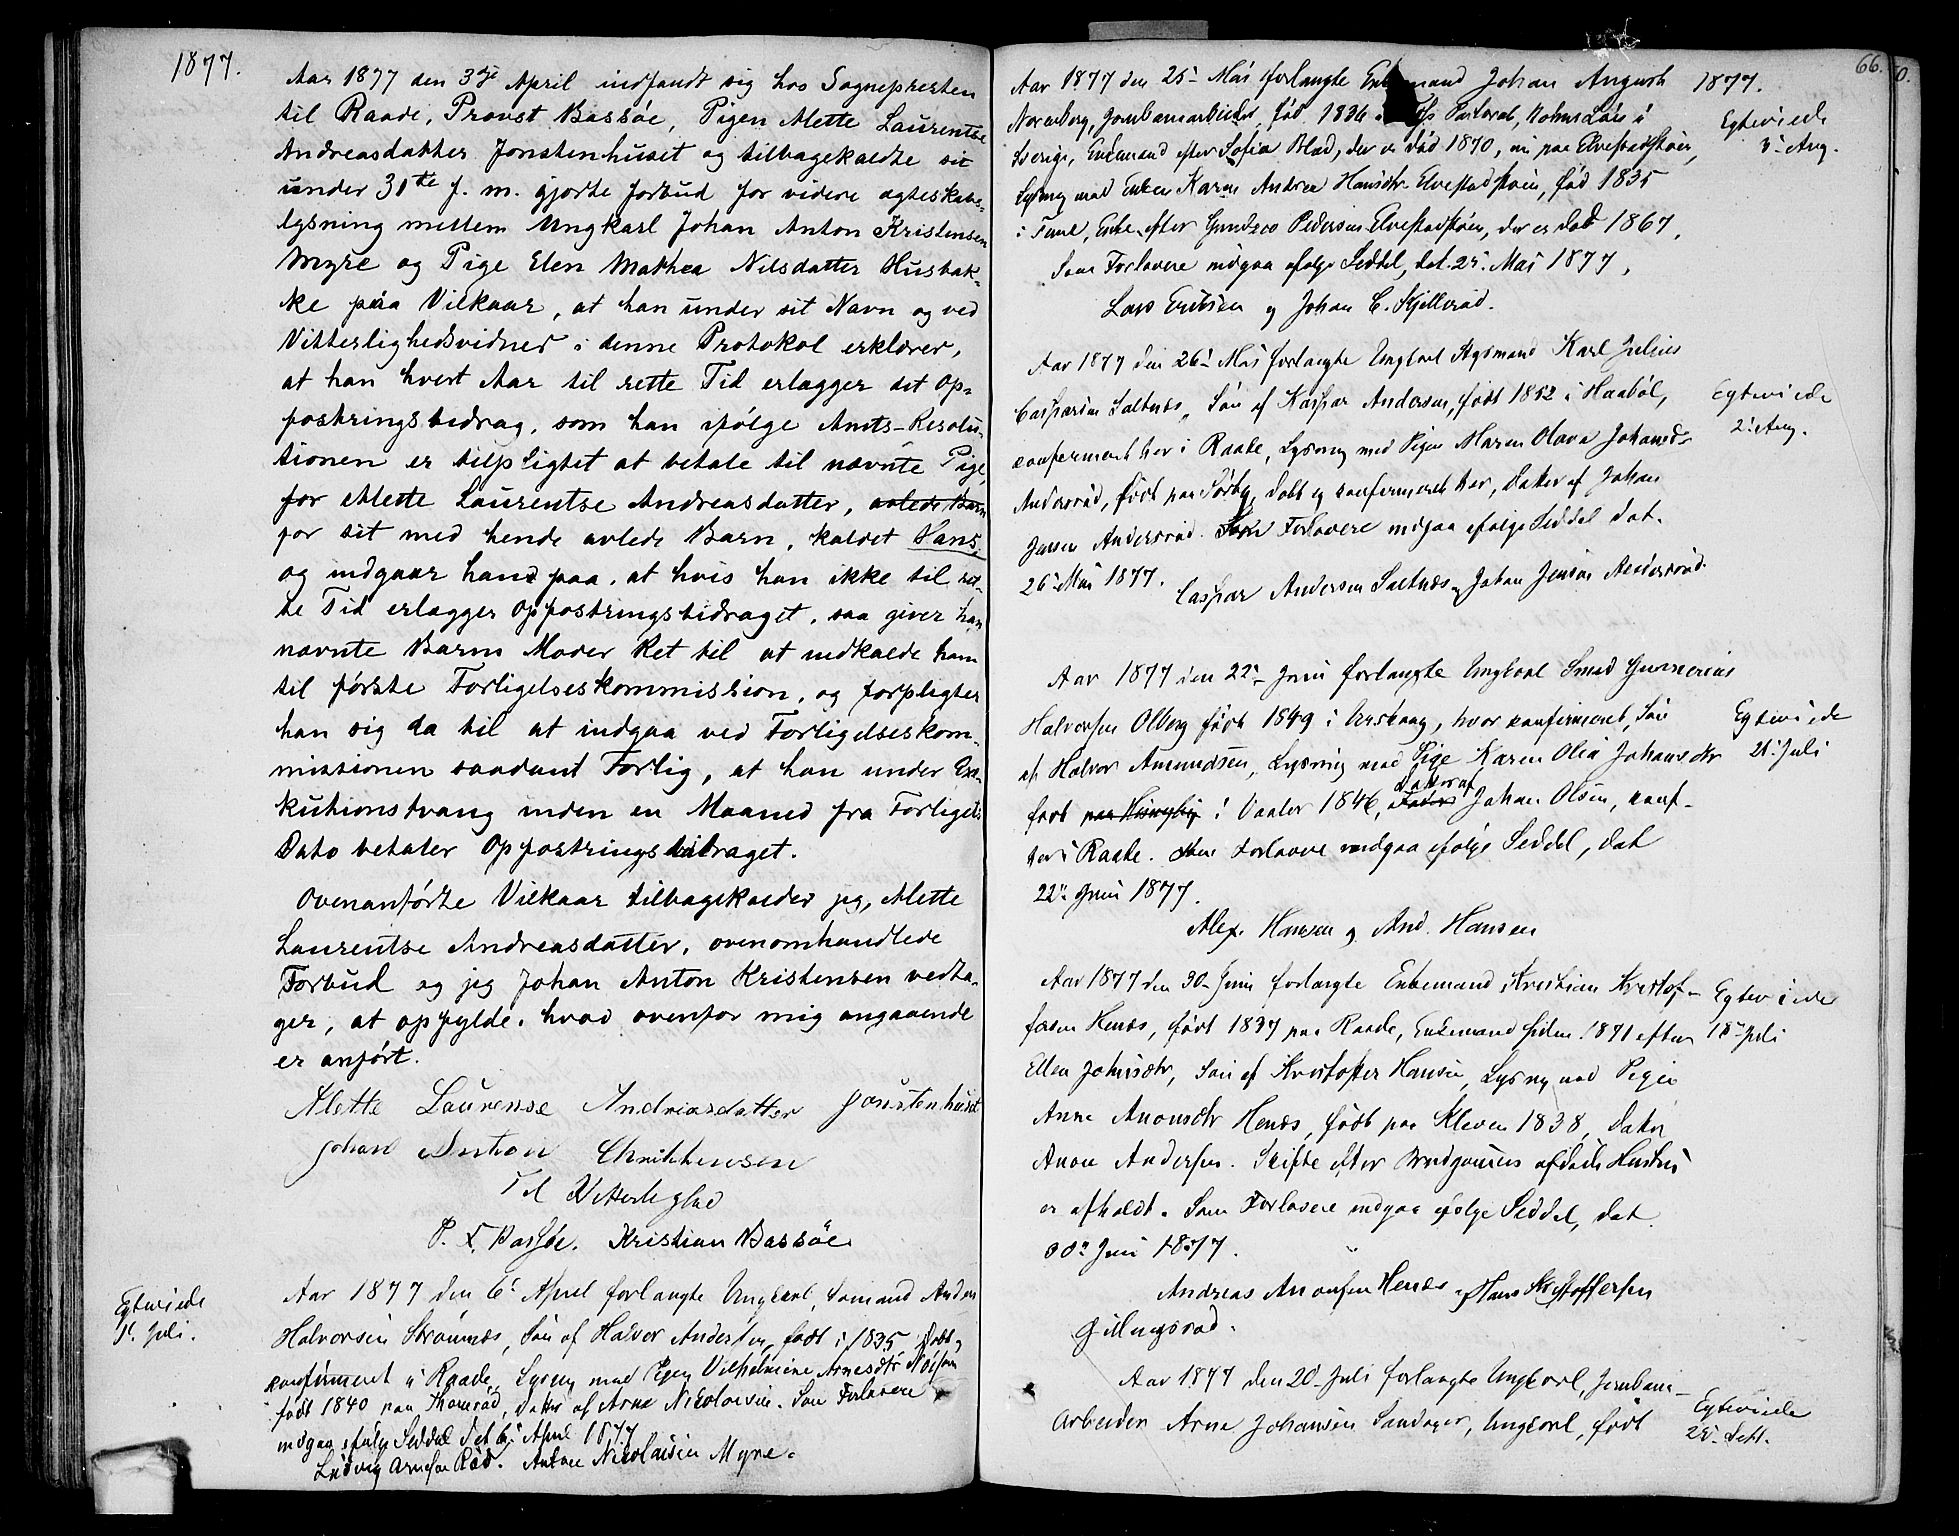 1877.
Aar 1877 den 3die April indfandt sig hos Sognepresten
til Raade, Provst Bassøe, Pigen Mette Laurentse
Andreasdatter Jonstenhuset og tilbagekaldte sit
under 31te f. m. gjorte forbud for videre ægteskabs-
lysning mellem Ungkarl Johan Anton Kristensen
Myre og Pige Elen Mathea Nilsdatter Husbak-
ke paa Vilkaar, at han under sit Navn og ved
Vitterlighedsvidner i denne Protokol erklærer,
at han hvert Aar til rette Tid erlægger det Op-
fostringsbidrag, som han ifølge Amts-Resolu-
tionen er tilpligtet at betale til nævnte Pige,
for Mette Laurentse Andreasdatter, avlede Barn
for sit med hende avlede Barn, kaldet Hans,
og indgaar hand paa, at hvis han ikke til ret-
te Tid erlægger Opfostringsbidraget, saa giver han
nævnte Barns Moder Ret til at indkalde ham
til første Forligelseskommission, og forpligter
han sig da til at indgaa ved Forligelseskom-
missionen saadant Forlig, at han under Exe-
kutionstvang inden en Maaned fra Forligets
Dato betaler Opfostringsbidraget.
Ovenanførte Vilkaar tilbagekalder jeg, Mette
Laurentse Andreasdatter, ovenomhandlede
Forbud og jeg Johan Anton Kristensen vedta-
ger, at opfylde, hvad ovenfor mig angaaende
er anført.
Mette Laurense Andreasdatter Jonstenhuset
Johan Anton Christensen
Til Vitterlighed
P. F. Bassøe. Kristian Bassøe.
Egteviede
1. Juli.
Aar 1877 den 6. April forlangte Ungkarl, Sømand Anders
Halvorsen Strømnæs, Søn af Halvor Andersen, født i 1835, døbt og
confirmeret i Raade, Lysning med Pigen Vilhelmine Arnesdtr
født 1840 paa Thomrød, Datter af Arne Nicolaisen. Som Forlovere
indgaa ifølge Seddel dat 6. April 1877
Ludvig Arnesen Rød. Anton Nicolaisen Myre.
66.
1877.
Aar 1877 den 25. Mai forlangte Enkemand Johan August
Norenberg, Jernbanearbeider, fød 1836 Pastorat, Län i
Sverige, Enkemand efter Sofia Blad, der er død 1870, nu paa Elvestadstøen,
Lysning med Enken Karen Andrea Hansdtr Elvestadstøen, fød 1835
i , Enke efter Pedersen Elvestadstøen, der er død 1867.
Som Forlovere indgaa ifølge Seddel, dat. 25. Mai 1877,
Lars Eriksen og Johan C. Skjellerød.
Egteviede
3. Aug.
Aar 1877 den 26. Mai forlangte Ungkarl Karl Julius
Casparsen Saltnæs, Søn af Kaspar Andersen, født 1852 i Haabøl,
confirmeret her i Raade, Lysning med Pigen Maren Olava Johansdtr
Andersrød, født paa Sørby, døbt og confirmeret her, Datter af Johan
Jensen Andersrød. Som Forlovere indgaa ifølge Seddel dat.
26. Mai 1877.
Caspar Andersen Saltnæs, Johan Jensen Andersrød.
Egteviede
2. Aug.
Aar 1877 den 22. Juni forlangte Ungkarl Smed Gunnerius
Halvorsen Olberg født 1849 i Aurskoug, hvor confirmeret, Søn
af Halvor Amundsen, Lysning med Pige Karen Olia Johansdtr
født i Vaaler 1846, Datter af Johan Olsen, conf-
her i Raade. Som Forlovere indgaa ifølge Seddel, dat
22. Juni 1877.
Alex. Hansen og And. Hansen
Egteviede
21. Juli
Aar 1877 den 30. Juni forlangte Enkemand Kristian Kristof-
fersen Henæs, født 1837 paa Raade, Enkemand siden 1871 efter
Ellen Johnsdtr, Søn af Kristoffer Hansen, Lysning med Pigen
Anne Anonsdtr Henæs, født paa Kleven 1838, Datter
Anon Andersen. Skifte efter Brudgommens afdøde Hustru
er afholdt. Som Forlovere indgaa ifølge Seddel, dat
30. Juni 1877.
Andreas Anonsen Henæs, Hans Kristoffersen
Gillingsrød.
Egteviede
18. Juli
Aar 1877 den 20. Juli forlangte Ungkarl, Jernbane-
Arbeider Arne Johansen Sandager, Ungkarl, født
Egteviede
25. Sept.